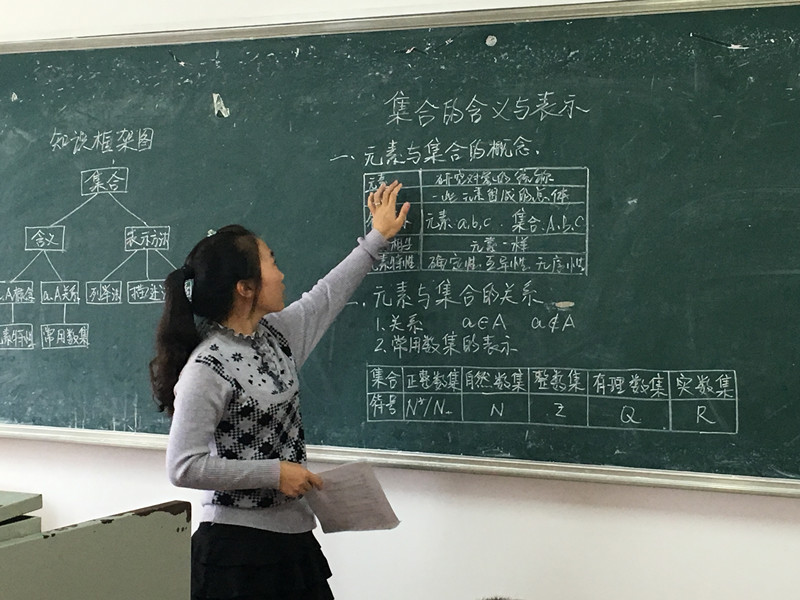 知识框架图
集合
含义 表示方法
a.A关系 列举法 描述法
素特性 常用数集
集合的含义与表示
一、元素与集合的概念.
元素 研究对象的统称
一些元素组成的总体
元素:a,b,c . 集合:A,B,C
相等 元素一样
元素特性 确定性、互异性、无序性
元素与集合的关系
1.关系 a∈A a∉A
2.常用数集的表示
集合 正整数集 自然数集 整数集 有理数集 实数集
符号 N*/N₊ N Z Q R